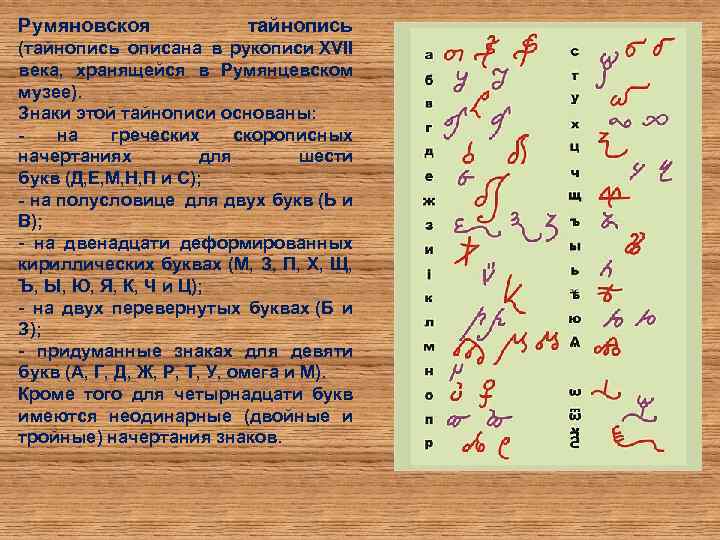 Румяновскоя тайнопись
(тайнопись описана в рукописи XVII
века, хранящейся в Румянцевском
музее).
Знаки этой тайнописи основаны:
- на греческих скорописных
начертаниях для шести
букв (Д,Е,М,Н,П и С);
- на полусловице для двух букв (Ь и
В);
- на двенадцати деформированных
кириллических буквах (М, З, П, Х, Щ,
Ъ, Ы, Ю, Я, К, Ч и Ц);
- на двух перевернутых буквах (Б и
З);
- придуманные знаках для девяти
букв (А, Г, Д, Ж, Р, Т, У, омега и М).
Кроме того для четырнадцати букв
имеются неодинарные (двойные и
тройные) начертания знаков.
а
б
в
г
д
е
ж
з
и
і
к
л
м
н
о
п
р
с
т
у
х
ц
ч
щ
ъ
ы
ь
ѣ
ю
ѧ
ѡ